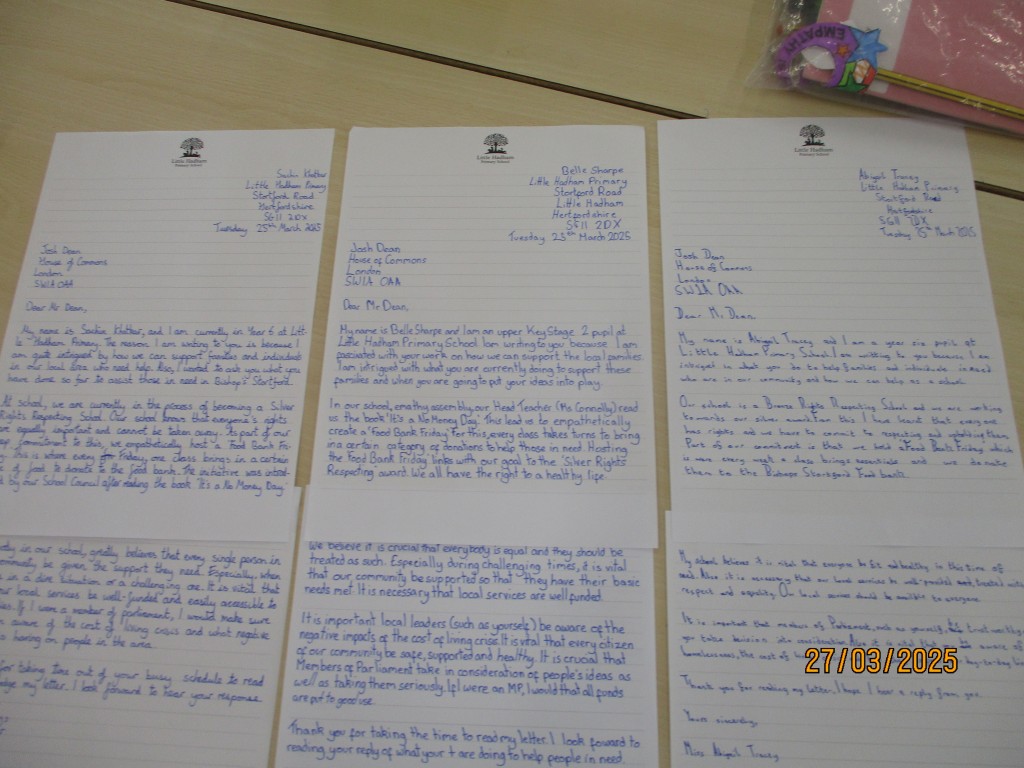 EMPATHY
Little Hadham
Primary School
Little Hadham Primary
Stortford Road
Hertfordshire
SG11 2DX
Tuesday 25th March 2025
Josh Dean
House of Commons
London
SW1A 0AA
Dear Mr Dean,
My name is Khattar, and I am currently in Year 6 at Litt-
le Hadham Primary. The reason I am writing to you is because I
am quite intrigued by how we can support families and individuals
in our local area who need help. Also, I wanted to ask you what you
have done so far to assist those in need in Bishop's Stortford.
At school, we are currently in the process of becoming a Silver
Rights Respecting School. Our school knows that everyone's rights
are equally important and cannot be taken away. As part of our
commitment to this, we empathetically host a Food Bank Fri-
this is where every Friday, one class brings in a certain
of food to donate to the food bank. The initiative was
by our School Council after reading the book 'It's a No Money Day.'
in our school, greatly believes that every single person in
be given the support they need. Especially, when
in a dire situation or a challenging one. It is vital that
our local services be well-funded and easily accessible to
If I were a member of parliament, I would make sure
aware of the cost of living crisis and what negative
having on people in the area.
for taking time out of your busy schedule to read
my letter. I look forward to your response.
Little Hadham
Primary School
Belle Sharpe
Little Hadham Primary
Stortford Road
Little Hadham
Hertfordshire
SG11 2DX
Tuesday 25th March 2025
Josh Dean
House of Commons
London
SW1A 0AA
Dear Mr Dean,
My name is Belle Sharpe and I am an upper Key Stage 2 pupil at
Little Hadham Primary School. I am writing to you because I am
with your work on how we can support the local families.
I am intrigued with what you are currently doing to support these
families and when you are going to put your ideas into play.
In our school, emathy assembly, our Head Teacher (Ms Connolly) read
us the book 'It's a No Money Day'. This lead us to empathetically
create a 'Food Bank Friday'. For this, every class takes turns to bring
in a certain category of donations to help those in need. Hosting
the Food Bank Friday links with our goal to the 'Silver Rights
Respecting award. We all have the right to a healthy life.
We believe it is crucial that everybody is equal and they should be
treated as such. Especially during challenging times, it is vital
that our community be supported so that they have their basic
needs met. It is necessary that local services are well funded.
It is important local leaders (such as yourself) be aware of the
negative impacts of the cost of living crisis. It is vital that every citizen
of our community be safe, supported and healthy. It is crucial that
Members of Parliament take in consideration of people's ideas as
well as taking them seriously. If I were an MP, I would that all funds
are put to good use.
Thank you for taking the time to read my letter. I look forward to
reading your reply of what your + are doing to help people in need.
Little Hadham
Primary School
Abigail Tracey
Little Hadham Primary
Stortford Road
Hertfordshire
SG11 2DX
Tuesday 25th March 2025
Josh Dean
House of Commons
London
SW1A 0AA
Dear Mr Dean
My name is Abigail Tracey and I am a year six pupil at
Little Hadham Primary School. I am writting to you because I am
intrigued in what you do to help families and individuals in need
who are in our community and how we can help as a school.
Our school is a Bronze Rights Respecting School and we are working
towards our silver award. In this I have learnt that everyone
has rights and we to commit to respecting and upholding them.
Part of our commitment is that we hold a Food Bank Friday which
is were every week a class brings essentials and we donate
them to the Bishops Stortford Food bank.
My school believes it is vital that everyone be fit and healthy in this time of
need. Also it is necessary that our local services be well-funded and treated with
respect and equality. Our local services should be availible to everyone.
It is important that members of Parliament, such as yourself,
you take decision into consideration. Also it is vital that aware of
homelessness, the cost of day-to-day
Thank you for reading my letter, I hope I hear a reply from you.
Yours sincerley,
Miss Abigail Tracey
27/03/2025